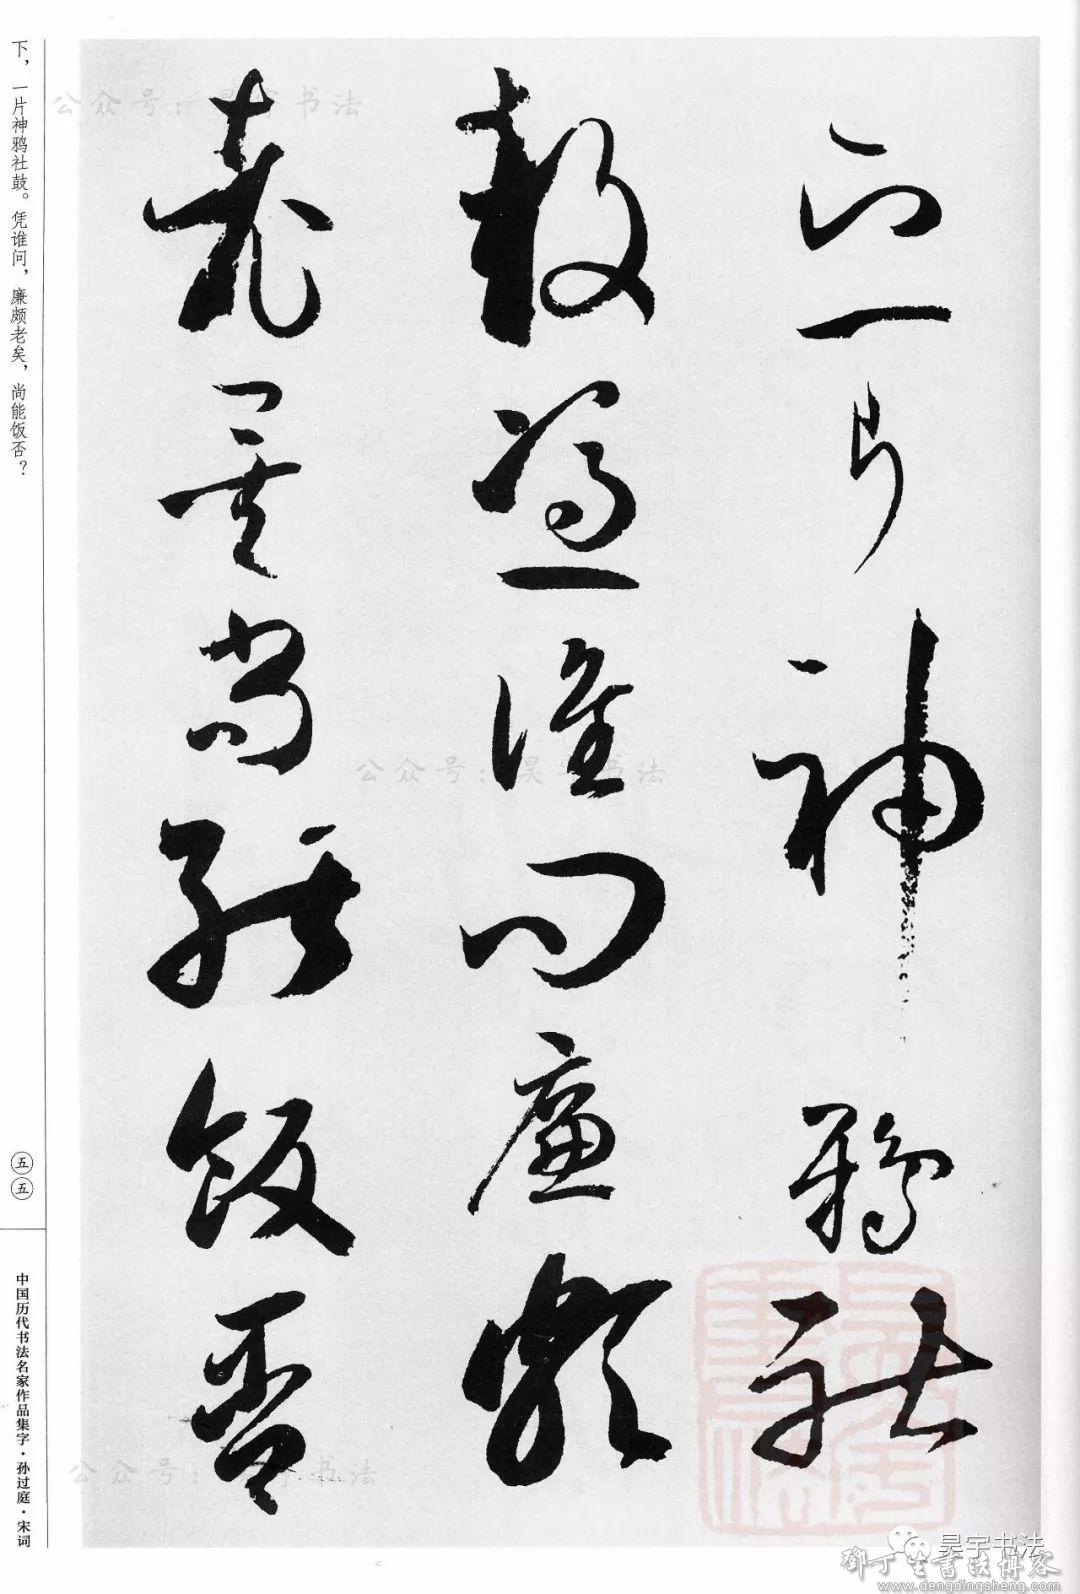 下一片神鸦社
鼓凭谁问廉颇
老矣尚能饭否
下，一片神鸦社鼓。凭谁问，廉颇老矣，尚能饭否？
五五
中国历代书法名家作品集字·孙过庭·宋词
公众号:昊宇书法
公众号:昊宇书法
公众号:昊宇书法
昊宇书法
邓丁生书法博客
www.dengdingsheng.com